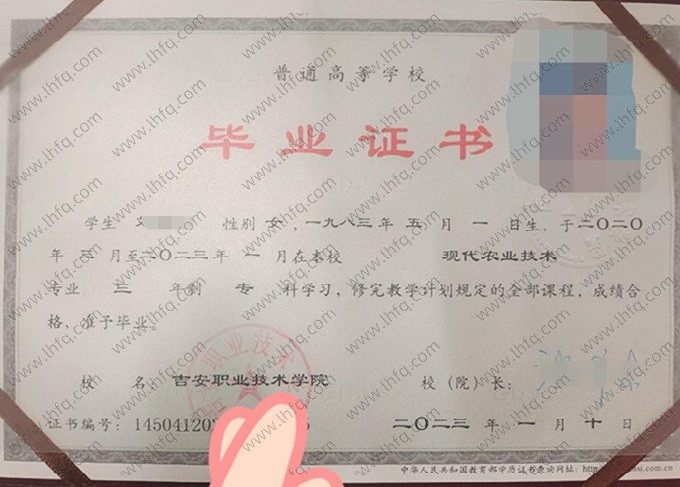 普通高等学校
毕业证书
学生 性别 女，一九八三年 五 月 一 日生，于二〇二〇
年 三 月至二〇二三年 一 月在本校 现代农业技术
专业 三 年制 专 科学习，修完教学计划规定的全部课程，成绩合
格，准予毕业。
校 名：吉安职业技术学院 校（院）长：
职业技术
证书编号：145041202
二〇二三 年 一 月 十 日
中华人民共和国教育部学历证书查询网址：
www.lhfq.com